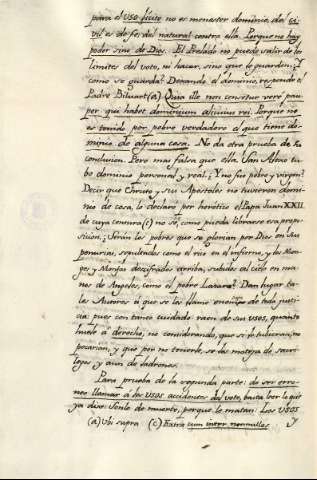 para el uso lícito no es menester dominio, del ci-
vil es de fe; del natural contra ella. Porque no hay
poder sino de Dios. El Prelado no puede salir de los
limites del voto, ni hacer, sino que lo guarden; y
como se guarda? Dexando el dominio, responde el
Padre Biluart (a) Quia ille non censetur vere pau-
per qui habet dominium alicuius rei. Porque no
es tenido por pobre verdadero el que tiene do-
minio de alguna cosa. No da otra prueba de su
conclusion. Pero mas falsa que ella. San Alexo tu-
bo dominio personal y real. ¿Y no fue pobre y virgen?
Decir que Christo y sus Apostoles no tuvieron domi-
nio de cosa, lo declaró por herético el Papa Juan XXII.
de cuya censura (c) no sé, como pueda librarse esa propo-
sicion. ¿Serán los pobres que se glorian por Dios en su
penurias, sepultados como el rico en el infierno, y los Mon-
ges y Monjas dezifrados arriba, subidos al cielo en ma-
nos de Angeles, como el pobre Lazaro? Dan lugar ta-
les Autores à que se les llame enemigos de toda justi-
cia, pues con tanto cuidado raen de sus usos, quanto
huele à derecho, no considerando, que si lo tubieran, no
pecarian, y que por no tenerlo, se les moteja de sacri-
legos y aun de ladrones.
Para prueba de la segunda parte: de ser erro-
neo llamar à los usos accidentes del voto, basta leer lo que
ya dixe. Sonlo de muerte, porque lo matan. Los usos
(a) Ubi supra (c) Extra cum inter nonnullos. y